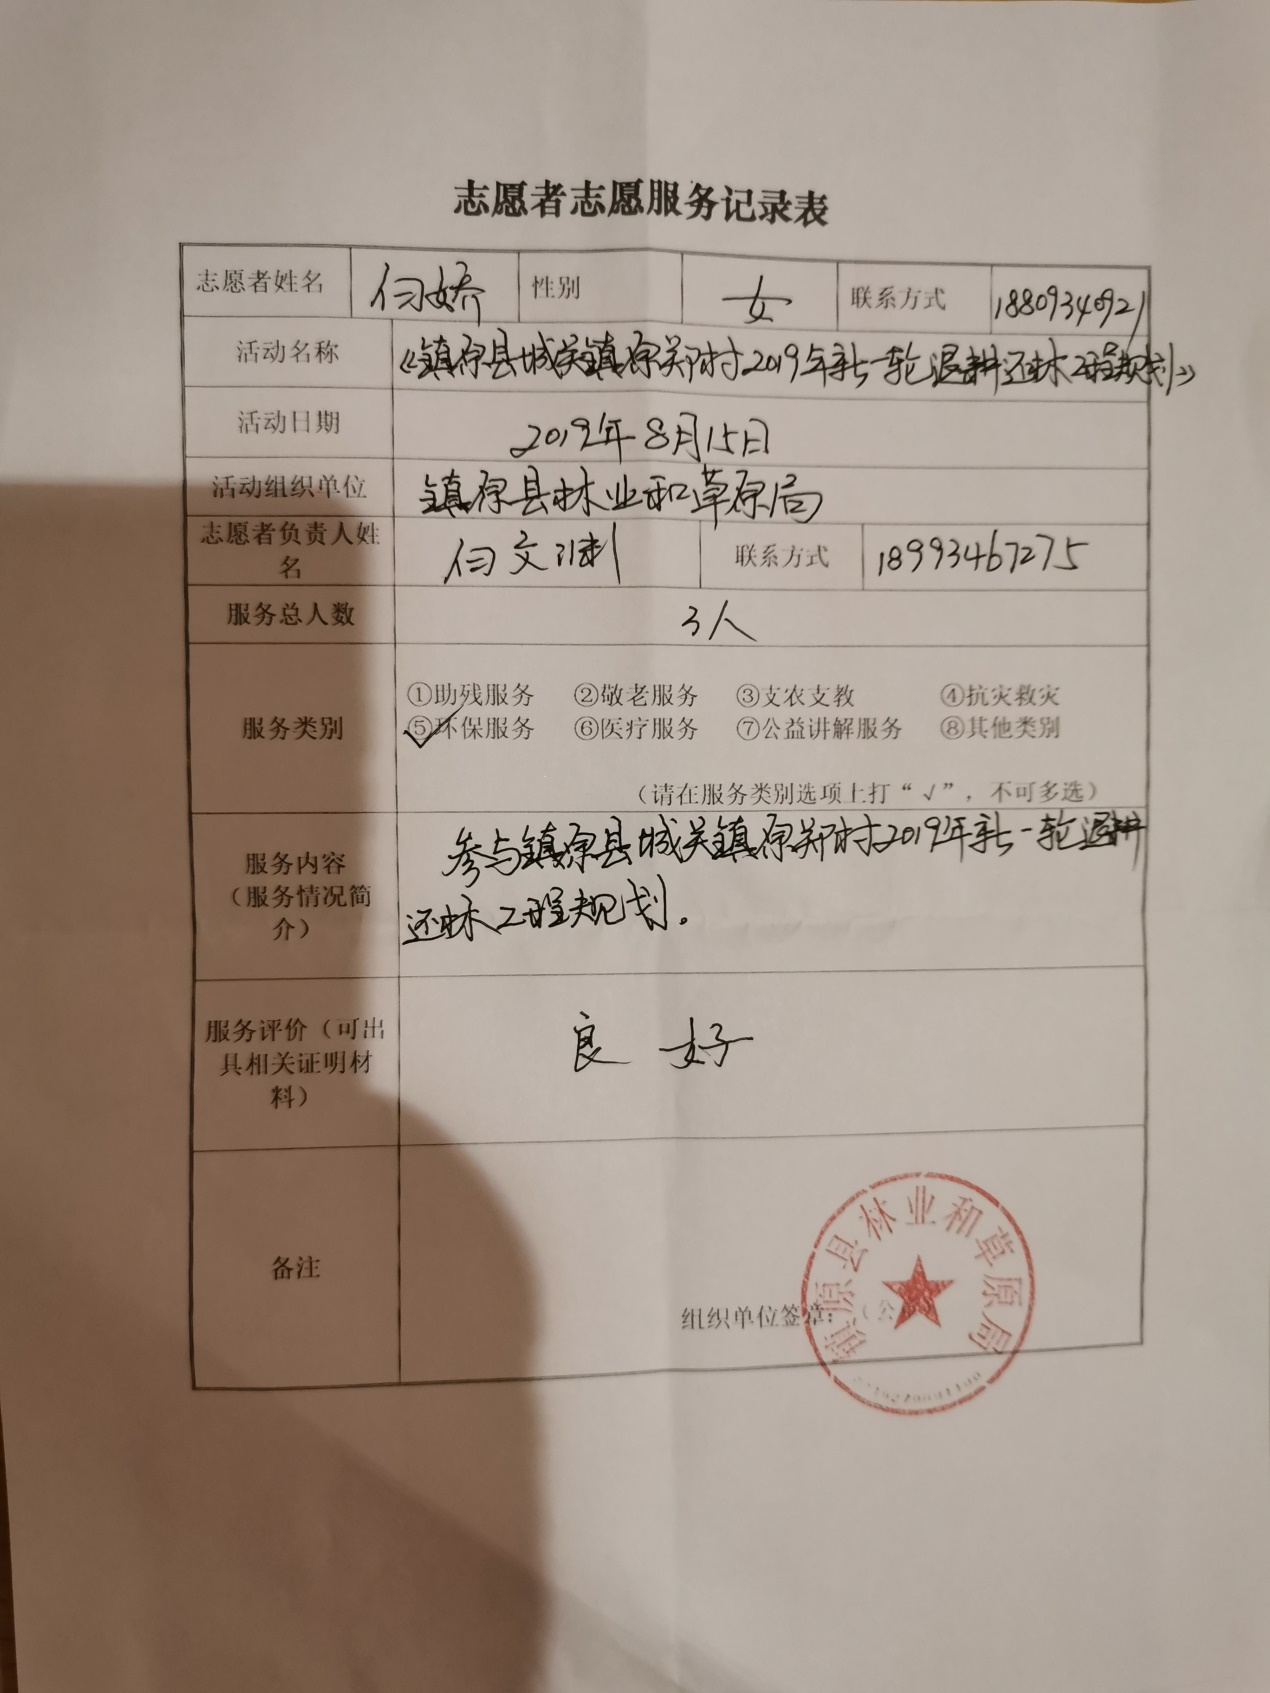 志愿者志愿服务记录表
志愿者姓名 闫娇 性别 女 联系方式 18809340921
活动名称 《镇原县城关镇原郑村2019年新一轮退耕还林工程规划》
活动日期 2019年8月15日
活动组织单位 镇原县林业和草原局
志愿者负责人姓
名
闫文 联系方式 18993467275
服务总人数 3人
服务类别
①助残服务 ②敬老服务 ③支农支教 ④抗灾救灾
⑤环保服务 ⑥医疗服务 ⑦公益讲解服务 ⑧其他类别
(请在服务类别选项上打“√”,不可多选)
服务内容
(服务情况简
介)
参与镇原县城关镇原郑村2019年新一轮退耕
还林工程规划。
服务评价(可出
具相关证明材
料)
良 好
备注
组织单位签章:(公
镇原县林业和草原局